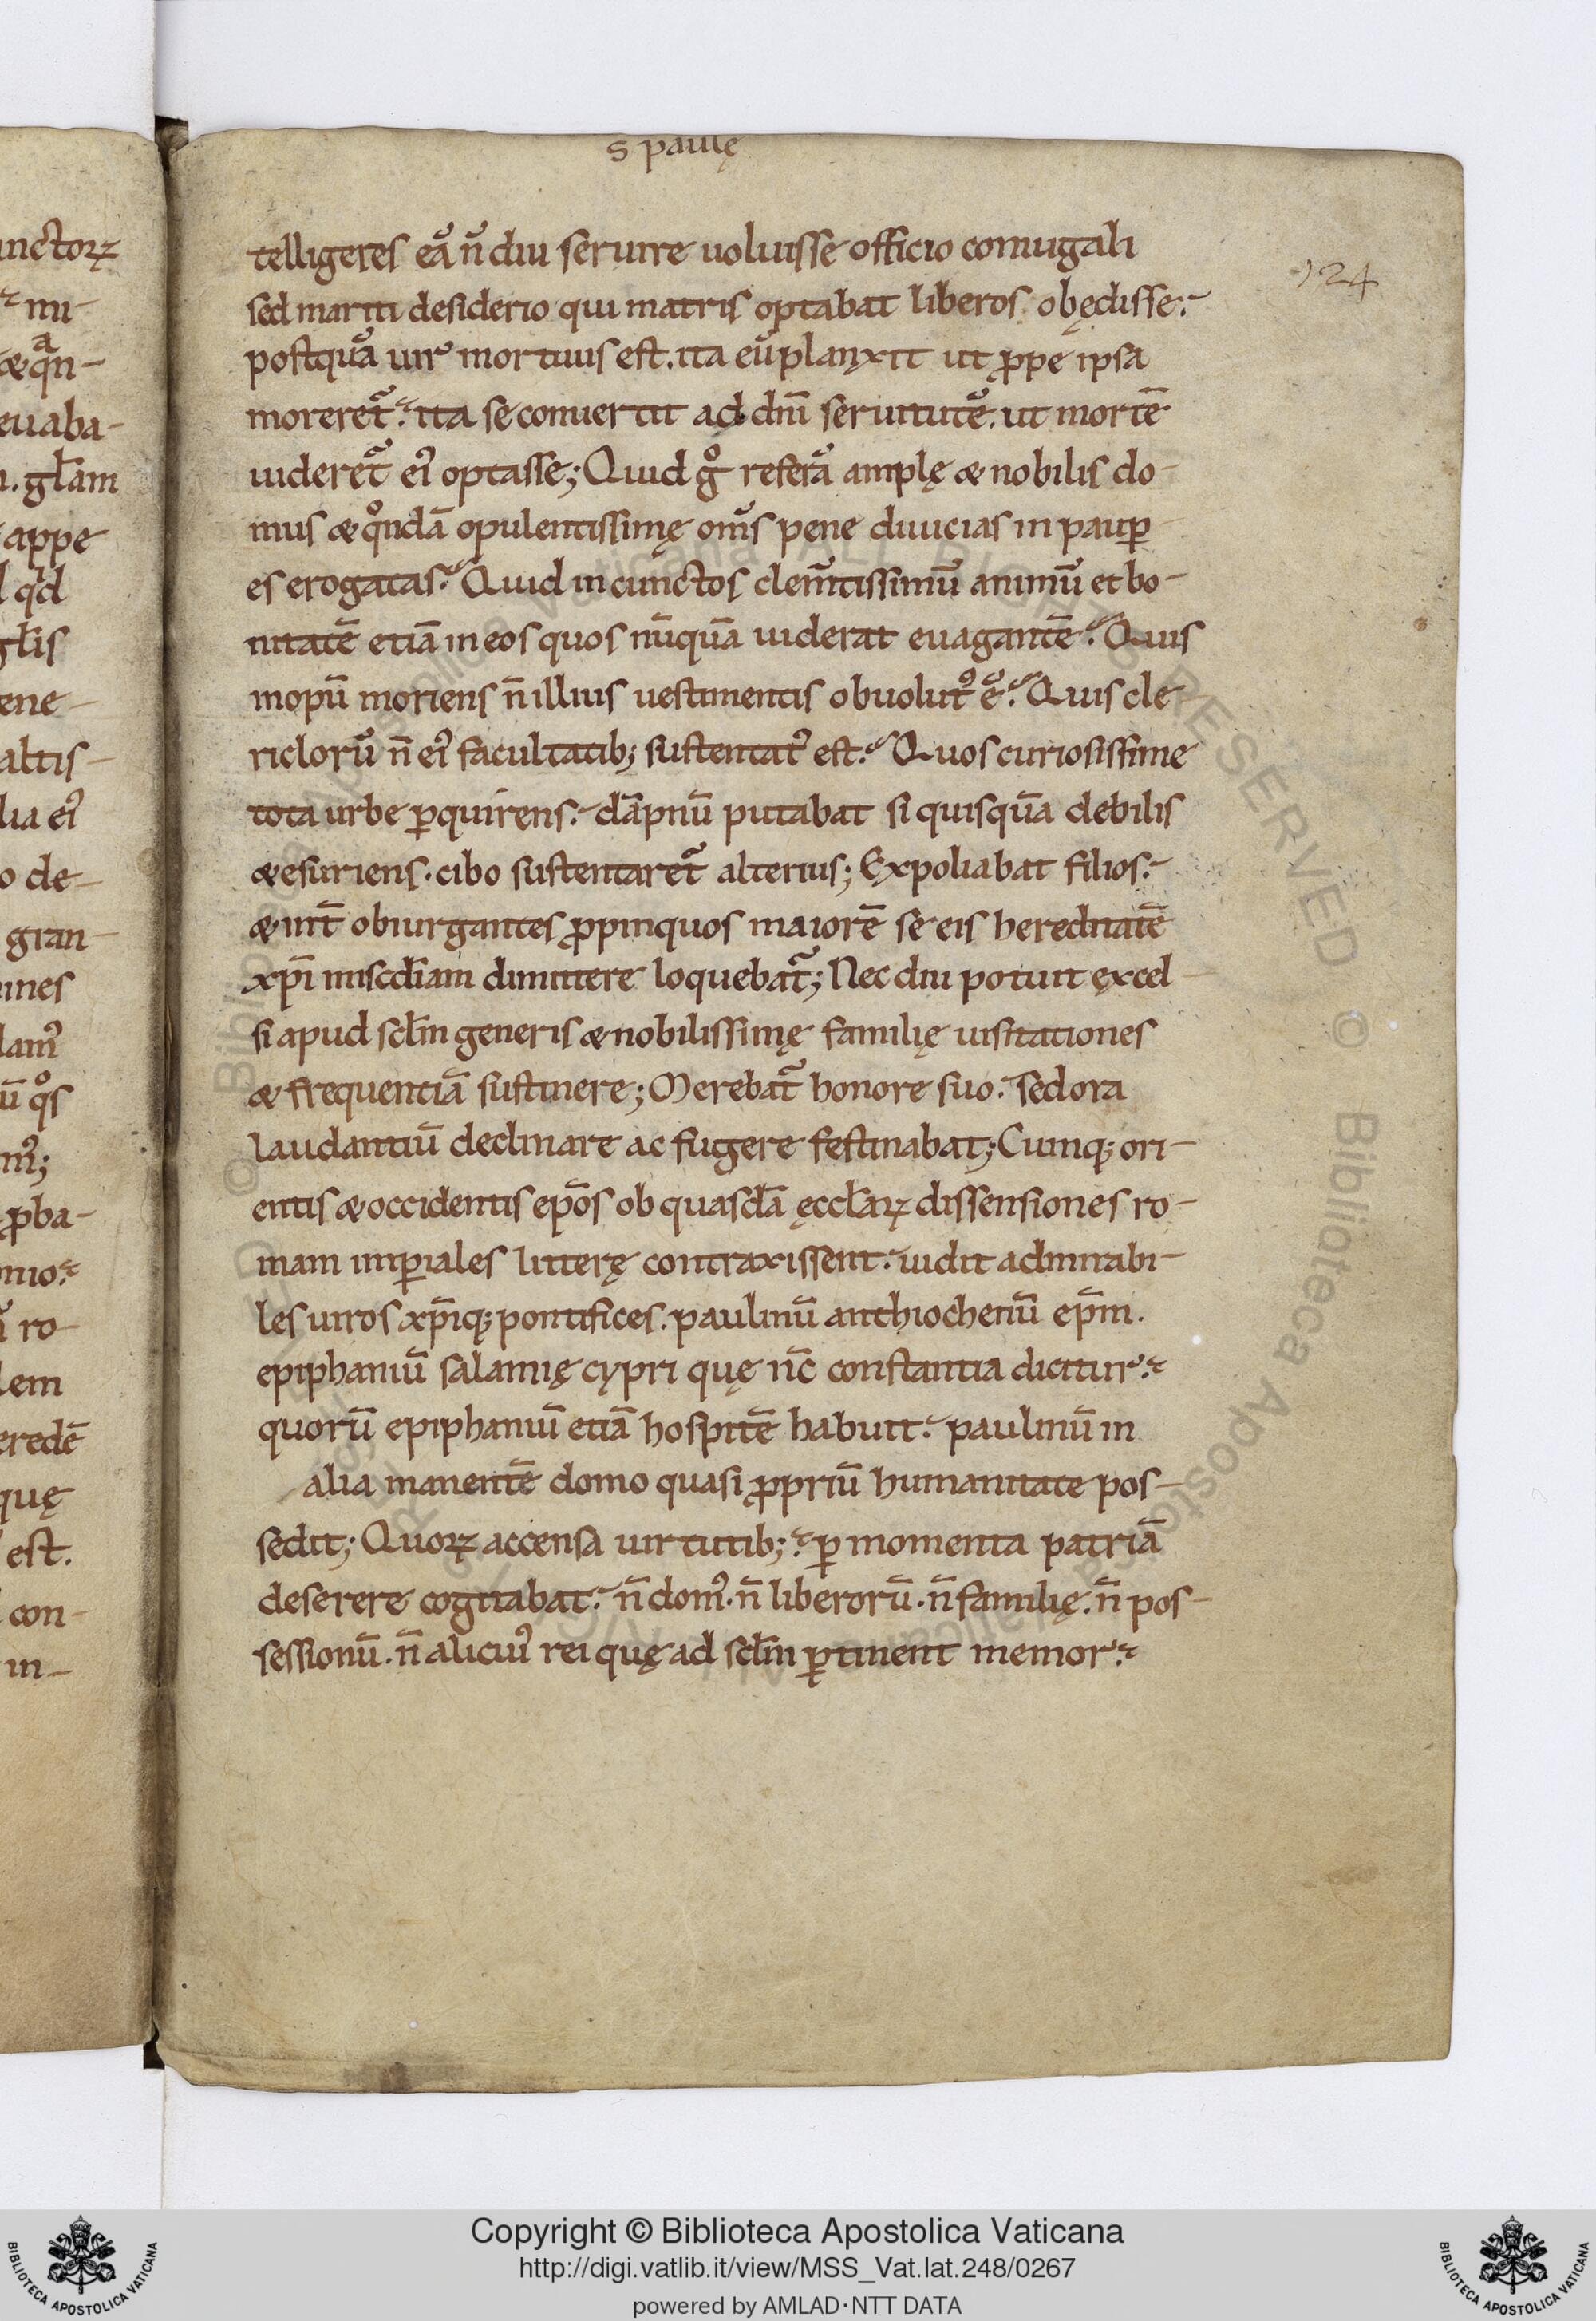 s paulę
telligeres eā n̄ diu seruire uoluisse officio coniugali
124
sed mariti desiderio qui matris optabat liberos obędisse.
postquā uir mortuus est. ita eū planxit ut ꝓpe ipsa
moreret᷑. ita se conuertit ad dn̄i seruitutē. ut mortē
uideret᷑ ei᷒ optasse; Quid gͦ referā amplę & nobilis do-
mus & qͦndā opulentissimę om̄s pene diuicias in pauꝑ
es erogatas. Quid in cunctos clem̄tissimū animū et bo-
nitatē etiā in eos quos nūquā uiderat euagantē. Quis
inopū moriens n̄ illius uestimentis obuolutꝰ ē. Quis cle-
ricloruͫ n̄ ei᷒ facultatib; sustentat᷒ est. Quos curiosissime
tota urbe ꝑquirens. dāpnū putabat si quisquā debilis
& esuriens. cibo sustentaret᷑ alterius; Expoliabat filios.
& int̄ obiurgantes ꝓpinquos maiorē se eis hereditatē
xp̄i misc̄diam dimittere loquebat᷑; Nec diu potuit ęxcel-
si apud scl̄m generis & nobilissimę familię uisitationes
& frequentiā sustinere; Merebat᷑ honore suo. sed ora
laudantiū declinare ac fugere festinabat; Cumq; ori-
entis & occidentis ep̄os ob quasdā ęccl̄aꝝ dissensiones ro-
mam imꝑiales litterę contraxissent. uidit admirabi-
les uiros xp̄iq; pontifices. paulinū anthiochenū ep̄m.
epiphaniū salaminę cypri quę nc̄ constantia dicitur.
quorū epiphaniū etiā hospitē habuit. paulinū in
alia manentē domo quasi ꝓpriū humanitate pos-
sedit; Quoꝝ accensa uirtutib;. ꝑ momenta patriā
deserere cogitabat. n̄ dom᷒. n̄ liberorū. n̄ familię. n̄ pos-
sessionū. n̄ alicui᷒ rei quę ad scl̄m ꝑtinent memor.
Copyright © Biblioteca Apostolica Vaticana
http://digi.vatlib.it/view/MSS_Vat.lat.248/0267
powered by AMLAD·NTT DATA
BIBLIOTECA APOSTOLICA VATICANA
BIBLIOTECA APOSTOLICA VATICANA